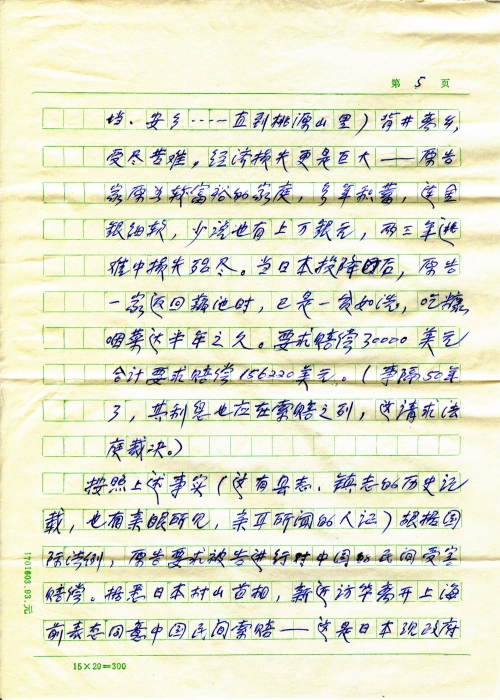 第 5 页
垱、安乡……一直到桃源山里)背井离乡,
受尽苦难。经济损失更是巨大——原告
家原为较富裕的家庭,多年积蓄,连金
银细软,少说也有上万银元,两三年逃
难中损失殆尽。当日本投降时后,原告
一家返回藕池时,已是一贫如洗,吃糠
咽菜达半年之久。要求赔偿30000美元
合计要求赔偿156220美元。(事隔50年
了,其利息也应在索赔之列,这请求法
庭裁决。)
按照上述事实(这有县志、镇志的历史记
载,也有亲眼所见,亲耳所闻的人证)根据国
际法例,原告要求被告进行对中国的民间受害
赔偿。据悉日本村山首相,新近访华离开上海
前表态同意中国民间索赔——这是日本现政府
1701603.93.元
15×20=300